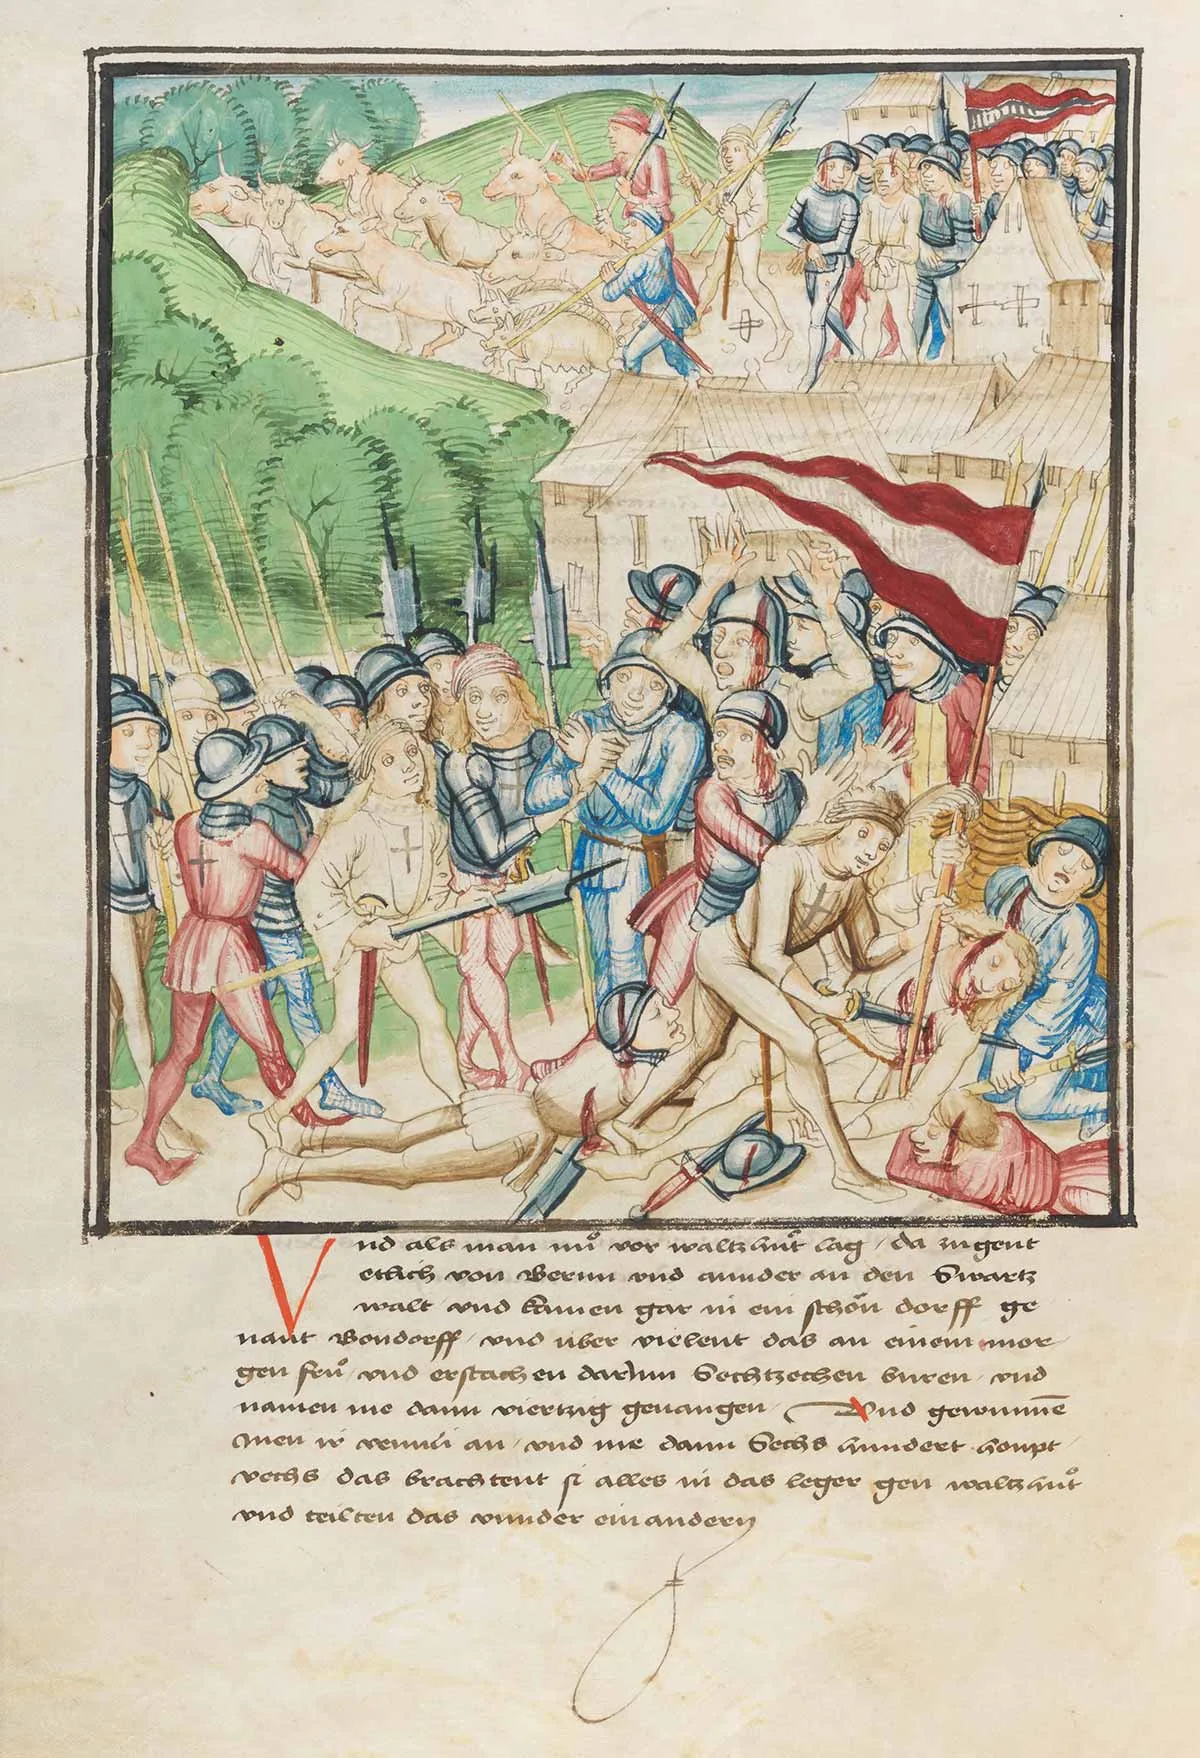 Und als man nuͦ vor waltzhuͦt lag / da zugent
etlich von Bernn vnd annder an den Swartz
walt / vnd kamen gar in ein schön dorff ge
nant Bondorff / vnd über vielent das an einem mor
gen fruͦ / vnd erstachen darInn Sechtzechen buren / vnd
namen me dann viertzig geuangen / Vnd gewunnē
men ir vennli an / vnd me dann Sechs hundert houpt
vechs das brachtent si alles in das leger gen waltzhuͦt
vnd teilten das vnnder einandern